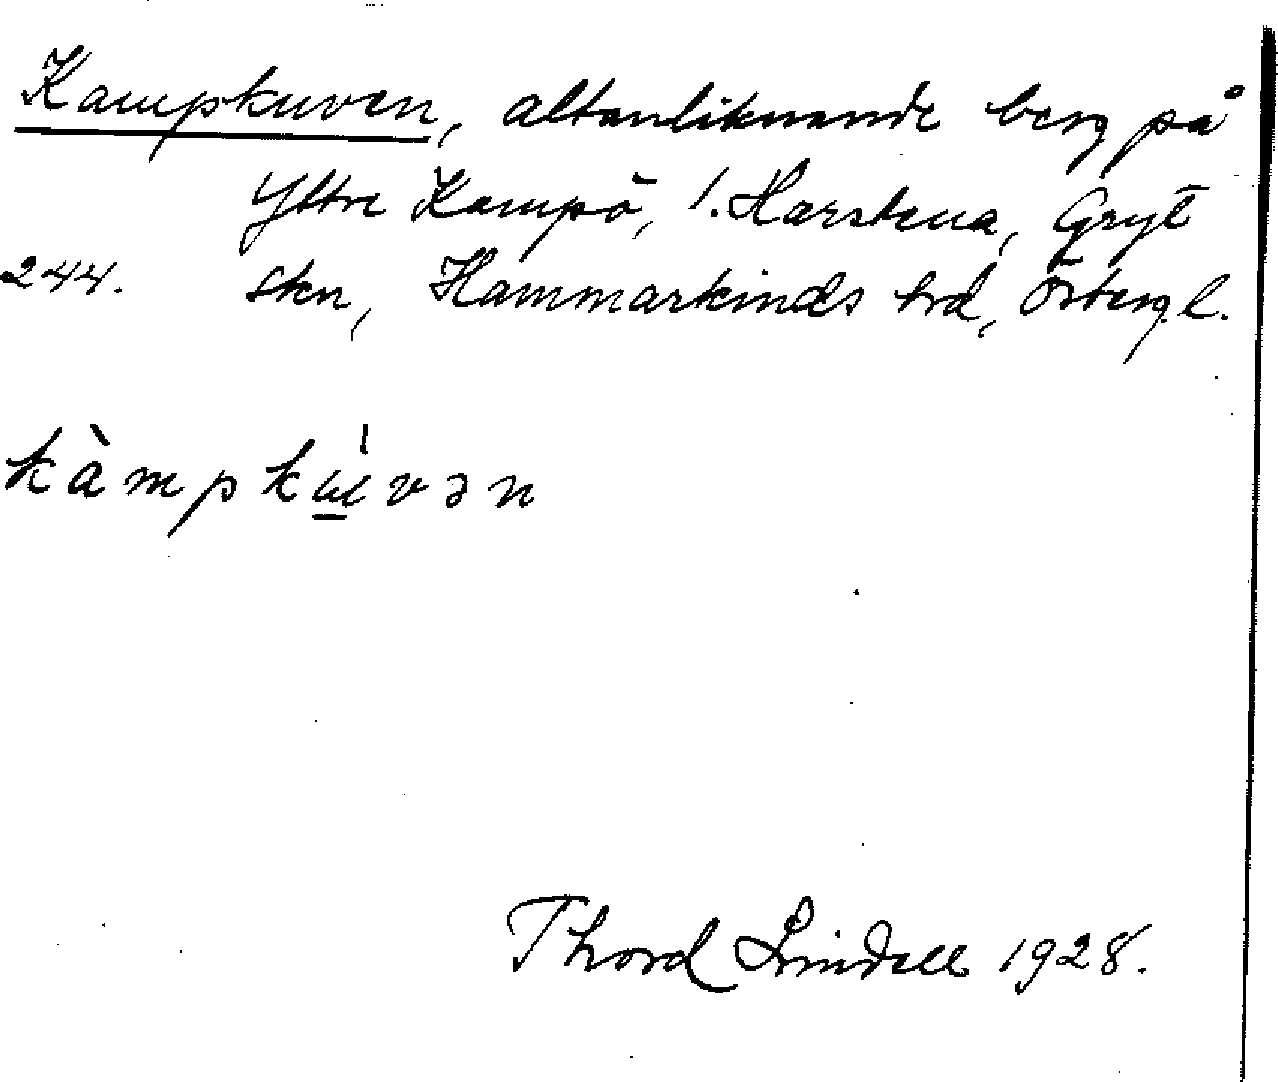 Kampkuven, altanliknande berg på
Yttre Kampö, l. Harstena, Gryt
244. skn, Hammarkinds hrd, Östergl.
kàmpkúvən
Thord Lindell 1928.